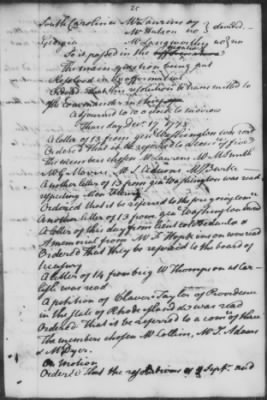 25
South Carolina Mr Laurens ay
Mr Hutson no } divided
Georgia Mr Langworthy no } no
So it passed in the
The main question being put
Resolved in the affirmative
Ordered That this resolution be transmitted to
the commander in chief
Adjourned to 10 o Clock to morrow
Thursday Dec. 17 1778
A letter of 13 from gen Washington was read
Ordered That it be referred to a com of five
The members chosen Mr Laurens Mr M Smith
Mr G Morris Mr S Adams Mr Burke
Another letter of 13 from gen Washington was read
respecting
Ordered That it be referred to the foregoing com
Another letter of 13 from gen Washington and
A letter of this day from lieut col &
A memorial from Mr F Hopkinson were read
Ordered That they be referred to the board of
treasury
A letter of 14 from brig W Thompson at Car-
lisle was read
A petition of Clavis Taylor of Providence
in the state of Rhode island &c was read
Ordered That it be referred to a com of three
The members chosen Mr Collins, Mr S Adams
& Mr Dyer.
On motion
Ordered That the resolutions of 9 Septr. and